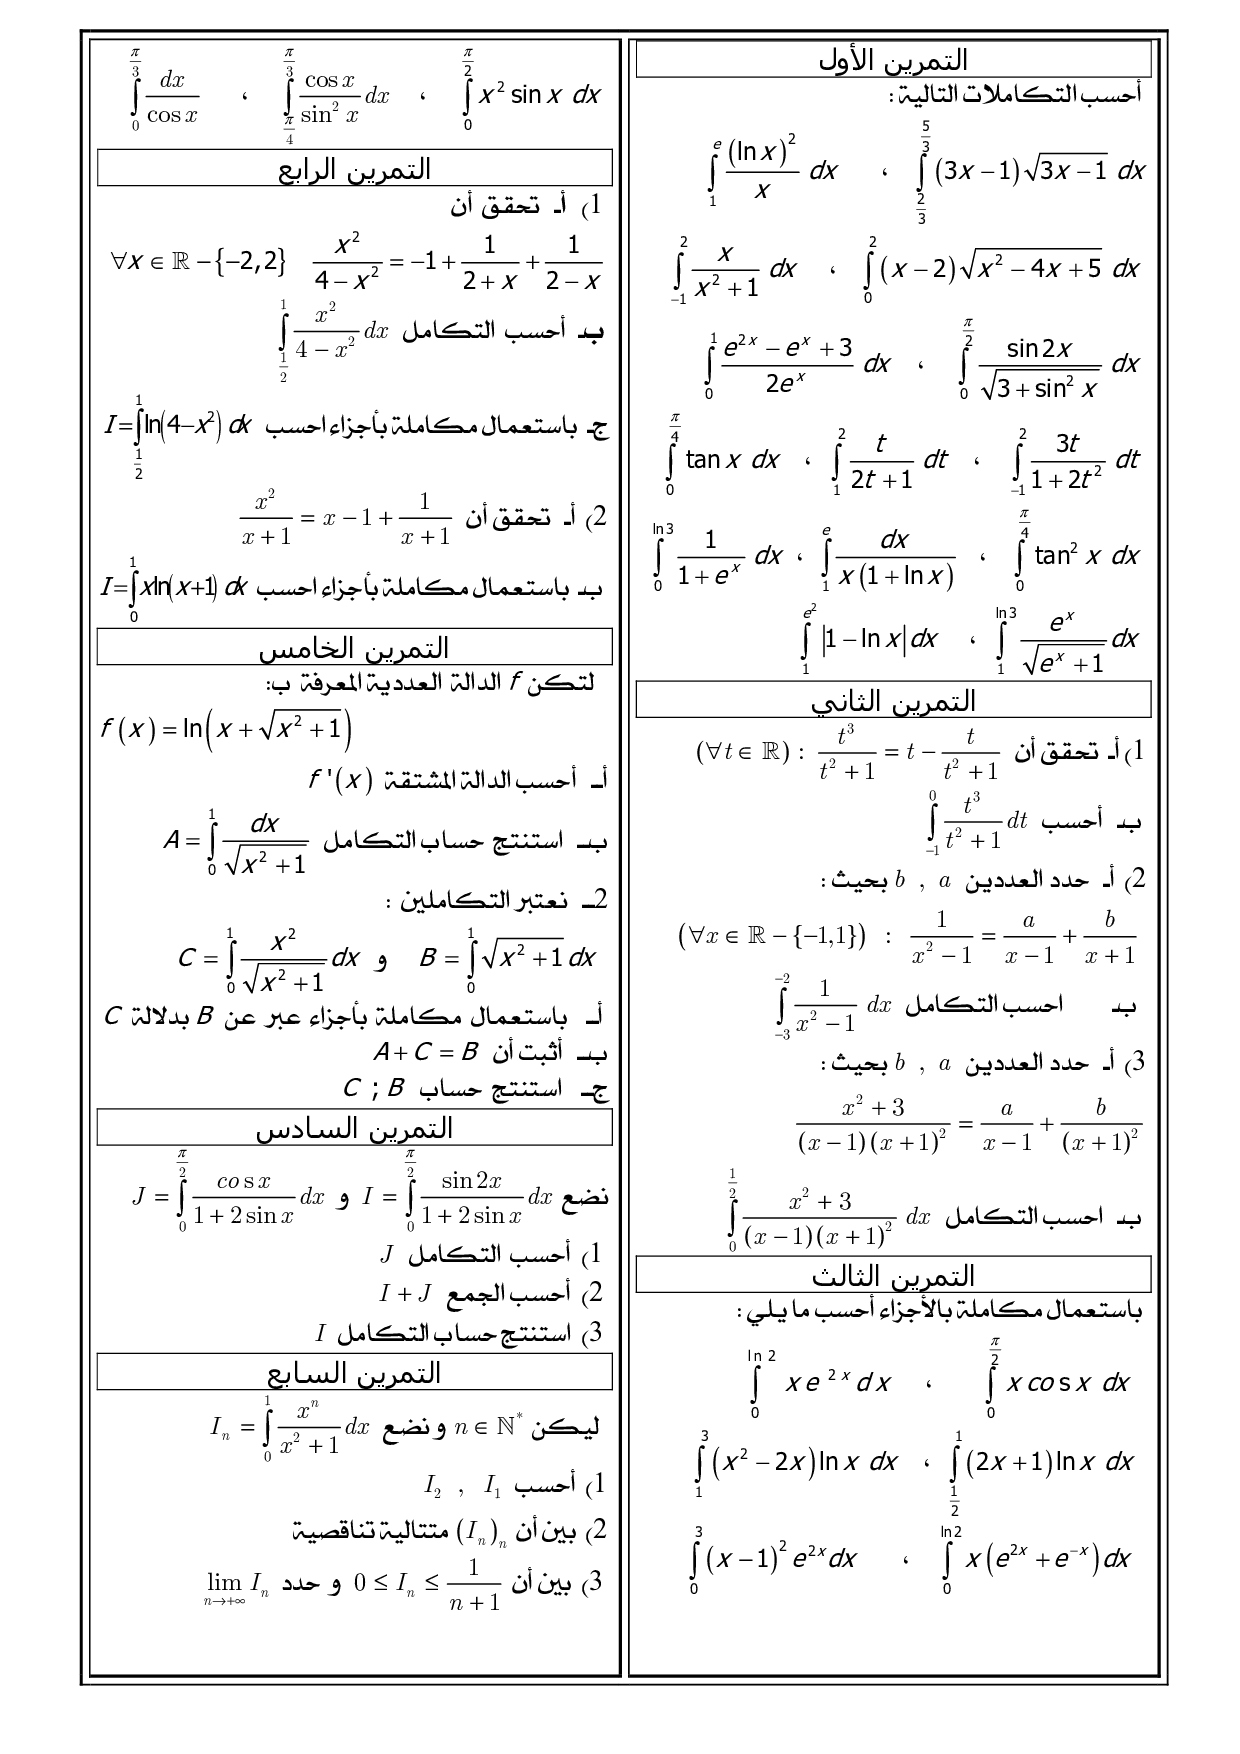 التمرين الأول
أحسب التكاملات التالية :
$\int_{\frac{2}{3}}^{\frac{5}{3}} (3x-1)\sqrt{3x-1}\ dx$ ، $\int_{1}^{e} \frac{(\ln x)^2}{x}\ dx$
$\int_{0}^{2} (x-2)\sqrt{x^2-4x+5}\ dx$ ، $\int_{-1}^{2} \frac{x}{x^2+1}\ dx$
$\int_{0}^{\frac{\pi}{2}} \frac{\sin 2x}{\sqrt{3+\sin^2 x}}\ dx$ ، $\int_{0}^{1} \frac{e^{2x}-e^x+3}{2e^x}\ dx$
$\int_{-1}^{2} \frac{3t}{1+2t^2}\ dt$ ، $\int_{1}^{2} \frac{t}{2t+1}\ dt$ ، $\int_{0}^{\frac{\pi}{4}} \tan x\ dx$
$\int_{0}^{\frac{\pi}{4}} \tan^2 x\ dx$ ، $\int_{1}^{e} \frac{dx}{x(1+\ln x)}$ ، $\int_{0}^{\ln 3} \frac{1}{1+e^x}\ dx$
$\int_{1}^{\ln 3} \frac{e^x}{\sqrt{e^x+1}} dx$ ، $\int_{1}^{e^2} |1-\ln x| dx$
التمرين الثاني
1) أـ تحقق أن $(\forall t \in \mathbb{R}) : \frac{t^3}{t^2+1} = t - \frac{t}{t^2+1}$
بـ أحسب $\int_{-1}^{0} \frac{t^3}{t^2+1} dt$
2) أـ حدد العددين a , b بحيث :
$(\forall x \in \mathbb{R}-\{-1,1\}) : \frac{1}{x^2-1} = \frac{a}{x-1} + \frac{b}{x+1}$
بـ احسب التكامل $\int_{-3}^{-2} \frac{1}{x^2-1}\ dx$
3) أـ حدد العددين a , b بحيث :
$\frac{x^2+3}{(x-1)(x+1)^2} = \frac{a}{x-1} + \frac{b}{(x+1)^2}$
بـ احسب التكامل $\int_{0}^{\frac{1}{2}} \frac{x^2+3}{(x-1)(x+1)^2}\ dx$
التمرين الثالث
باستعمال مكاملة بالأجزاء أحسب ما يلي :
$\int_{0}^{\frac{\pi}{2}} x \cos x\ dx$ ، $\int_{0}^{\ln 2} x e^{2x} dx$
$\int_{\frac{1}{2}}^{1} (2x+1)\ln x\ dx$ ، $\int_{1}^{3} (x^2-2x)\ln x\ dx$
$\int_{0}^{\ln 2} x(e^{2x}+e^{-x})dx$ ، $\int_{0}^{3} (x-1)^2 e^{2x} dx$
$\int_{0}^{\frac{\pi}{2}} x^2 \sin x\ dx$ ، $\int_{\frac{\pi}{4}}^{\frac{\pi}{3}} \frac{\cos x}{\sin^2 x} dx$ ، $\int_{0}^{\frac{\pi}{3}} \frac{dx}{\cos x}$
التمرين الرابع
1) أـ تحقق أن
$\forall x \in \mathbb{R}-\{-2,2\}\ \frac{x^2}{4-x^2} = -1 + \frac{1}{2+x} + \frac{1}{2-x}$
بـ أحسب التكامل $\int_{\frac{1}{2}}^{1} \frac{x^2}{4-x^2} dx$
جـ باستعمال مكاملة بأجزاء احسب $I = \int_{\frac{1}{2}}^{1} \ln(4-x^2)\ dx$
2) أـ تحقق أن $\frac{x^2}{x+1} = x-1+\frac{1}{x+1}$
بـ باستعمال مكاملة بأجزاء احسب $I = \int_{0}^{1} x\ln(x+1)\ dx$
التمرين الخامس
لتكن f الدالة العددية المعرفة ب:
$f(x) = \ln(x+\sqrt{x^2+1})$
أـ أحسب الدالة المشتقة $f'(x)$
بـ استنتج حساب التكامل $A = \int_{0}^{1} \frac{dx}{\sqrt{x^2+1}}$
2ـ نعتبر التكاملين :
$B = \int_{0}^{1} \sqrt{x^2+1}\,dx$ و $C = \int_{0}^{1} \frac{x^2}{\sqrt{x^2+1}} dx$
أـ باستعمال مكاملة بأجزاء عبر عن B بدلالة C
بـ أثبت أن $A+C=B$
جـ استنتج حساب C ; B
التمرين السادس
نضع $I = \int_{0}^{\frac{\pi}{2}} \frac{\sin 2x}{1+2\sin x} dx$ و $J = \int_{0}^{\frac{\pi}{2}} \frac{\cos x}{1+2\sin x} dx$
1) أحسب التكامل J
2) أحسب الجمع I + J
3) استنتج حساب التكامل I
التمرين السابع
ليكن $n \in \mathbb{N}^*$ و نضع $I_n = \int_{0}^{1} \frac{x^n}{x^2+1} dx$
1) أحسب $I_1$ , $I_2$
2) بين أن $(I_n)_n$ متتالية تناقصية
3) بين أن $0 \leq I_n \leq \frac{1}{n+1}$ و حدد $\lim_{n\to+\infty} I_n$